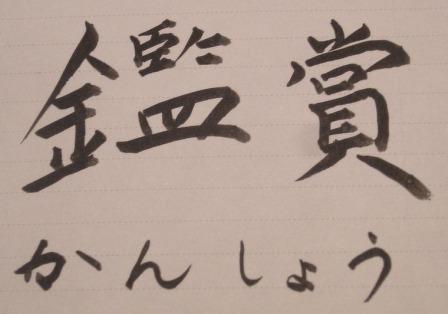 鑑賞
かんしょう